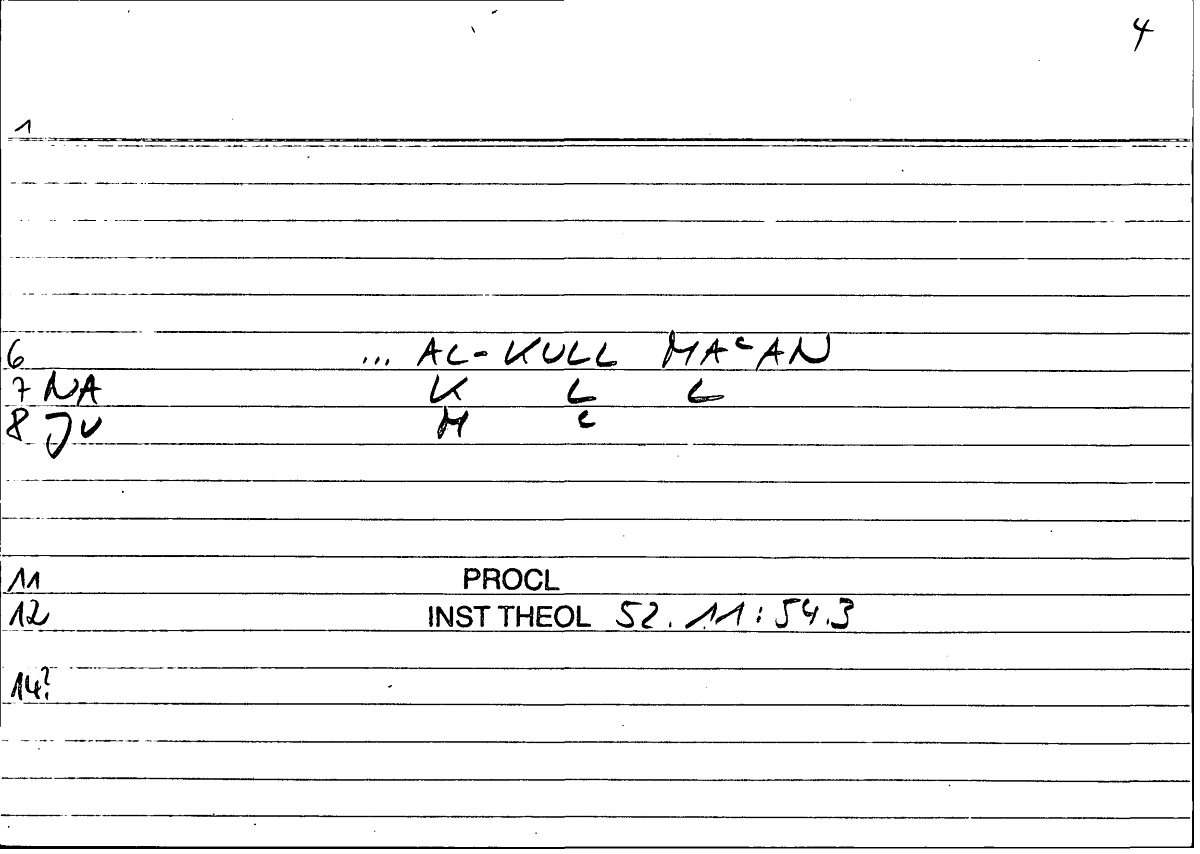 4
1
6 ... AL-KULL MAᶜAN
7 NA K L L
8 JU M ᶜ
11 PROCL
12 INST THEOL 52.11:54.3
14?